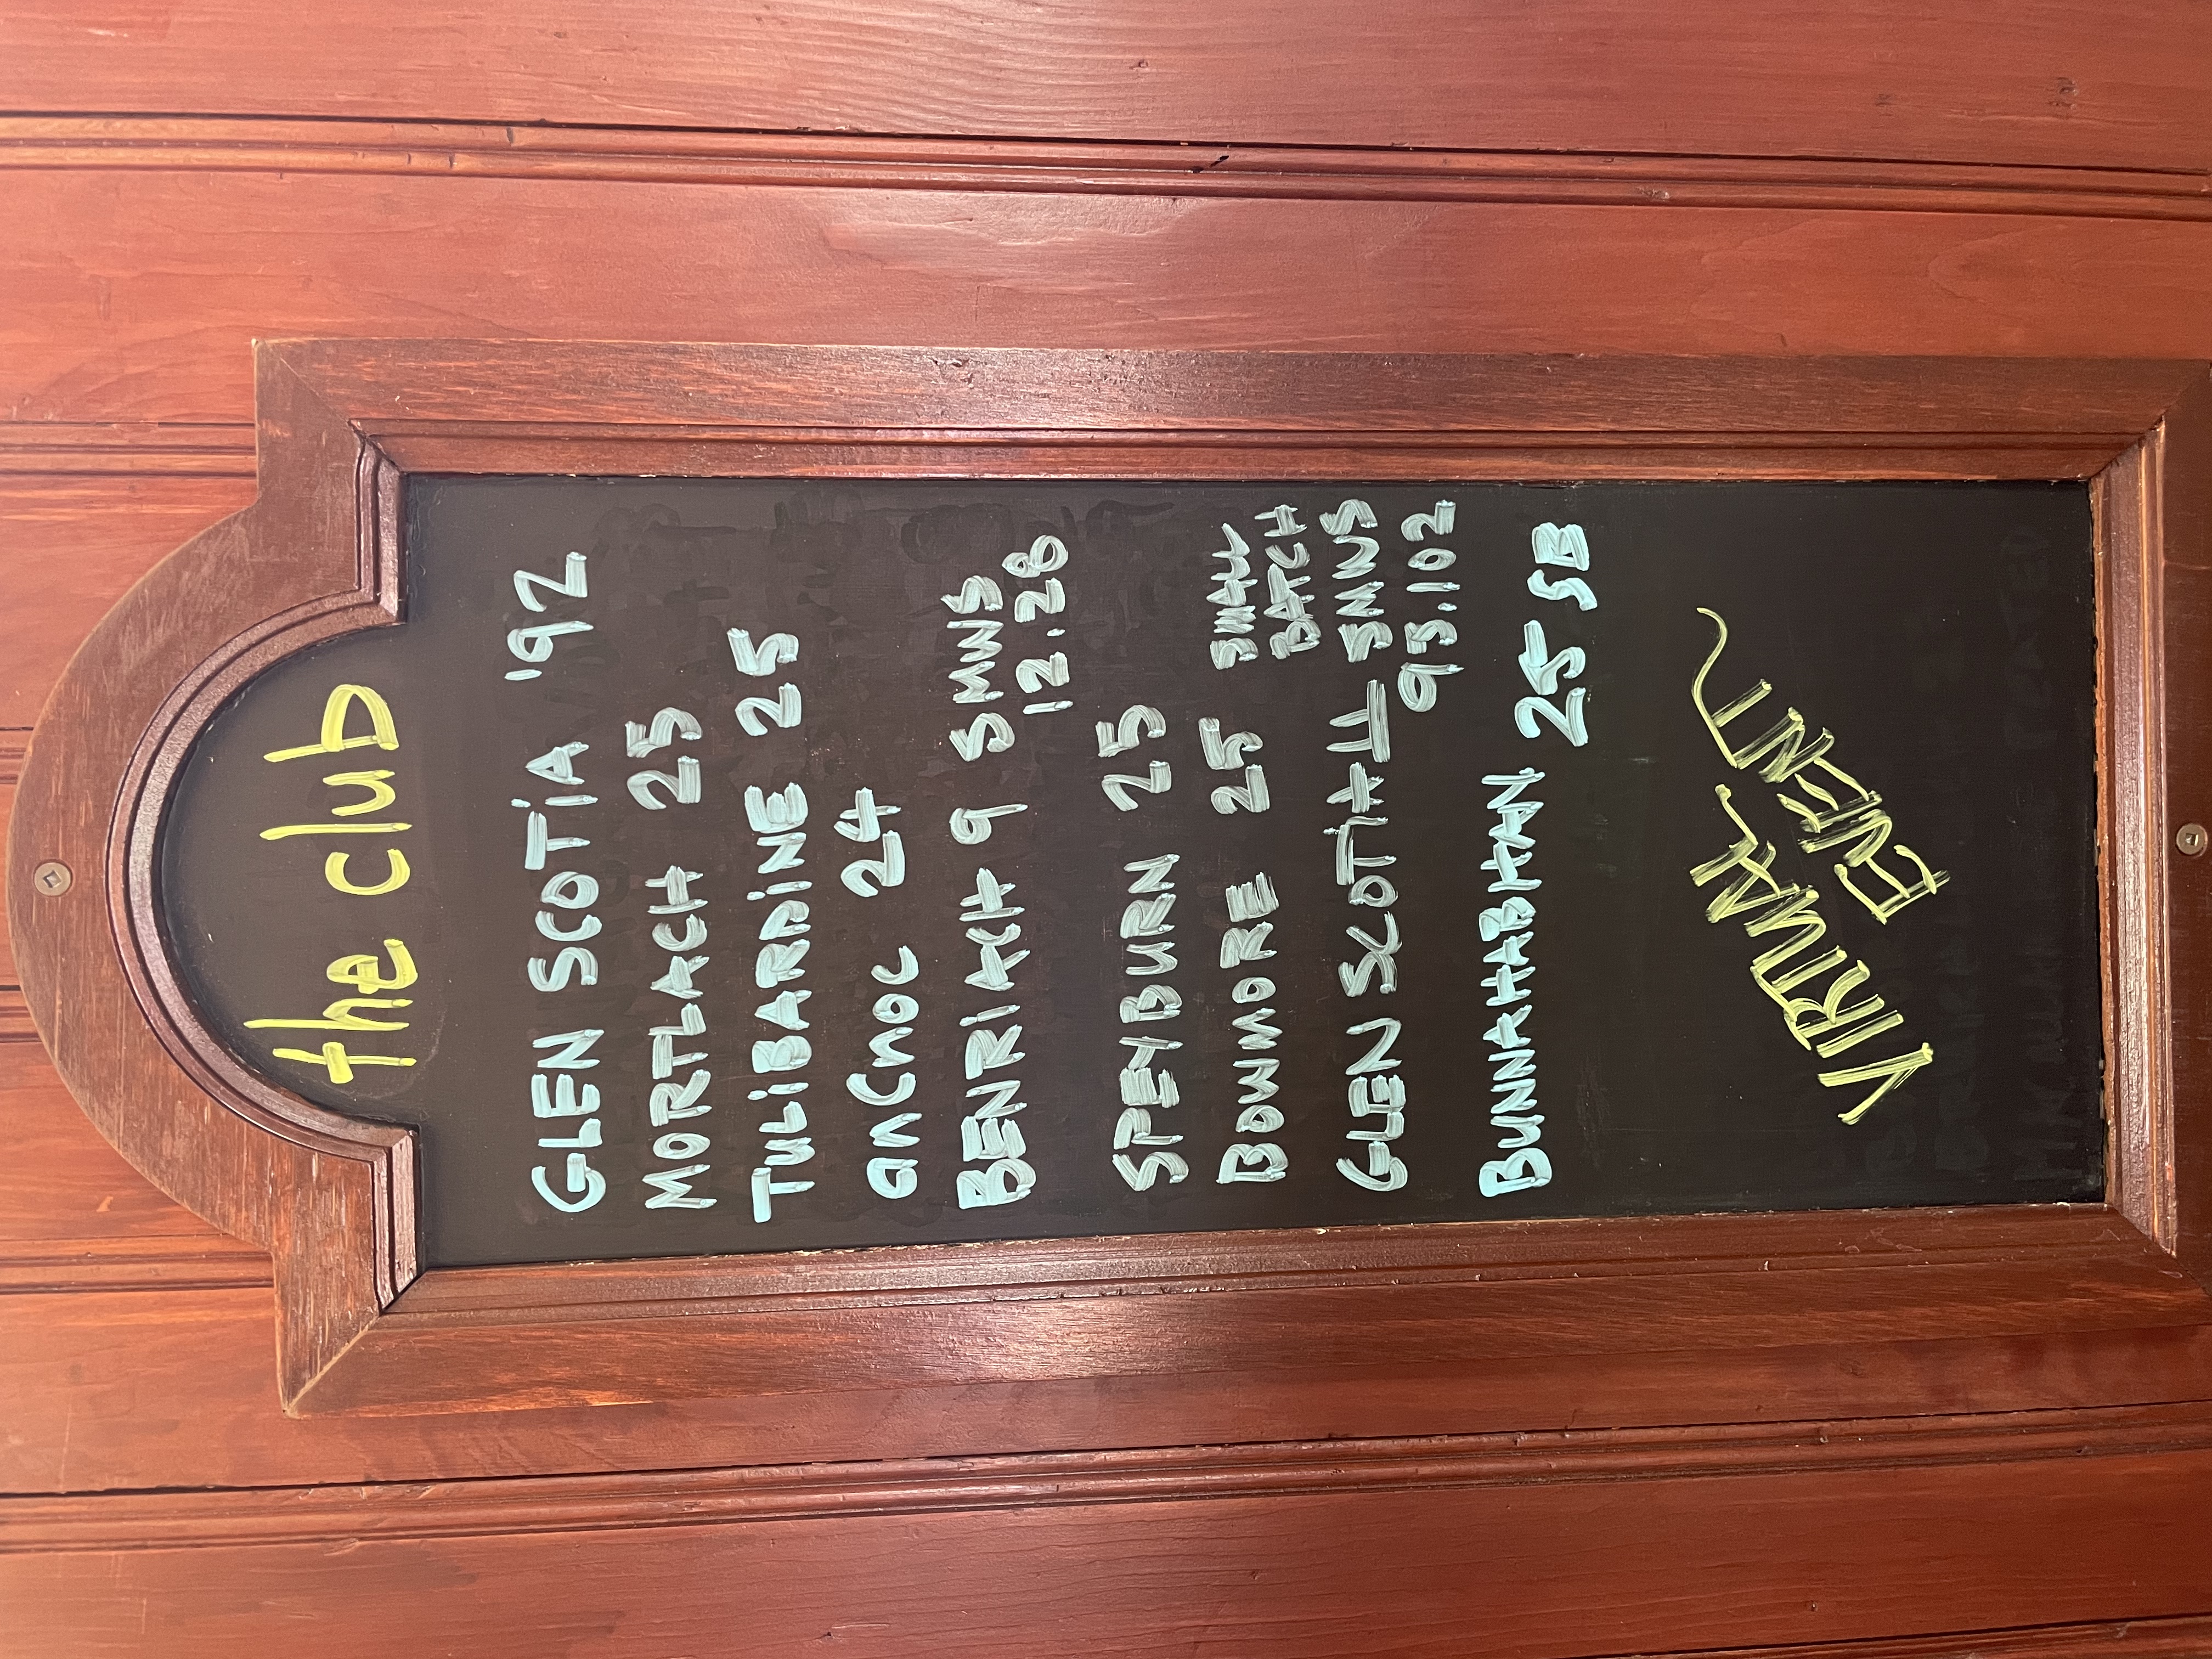 the club
GLEN SCOTIA 192
MORTLACH 25
TULIBARDINE 25
anCnoc 24
BENRIACH 9 S SMWS
12.28
SPEYBURN 25
BOWMORE 25 SMALL
BATCH
GLEN SCOTIA 11 SMWS
93.102
BUNNAHABHAN 25 SB
VIRTUAL
EVENT